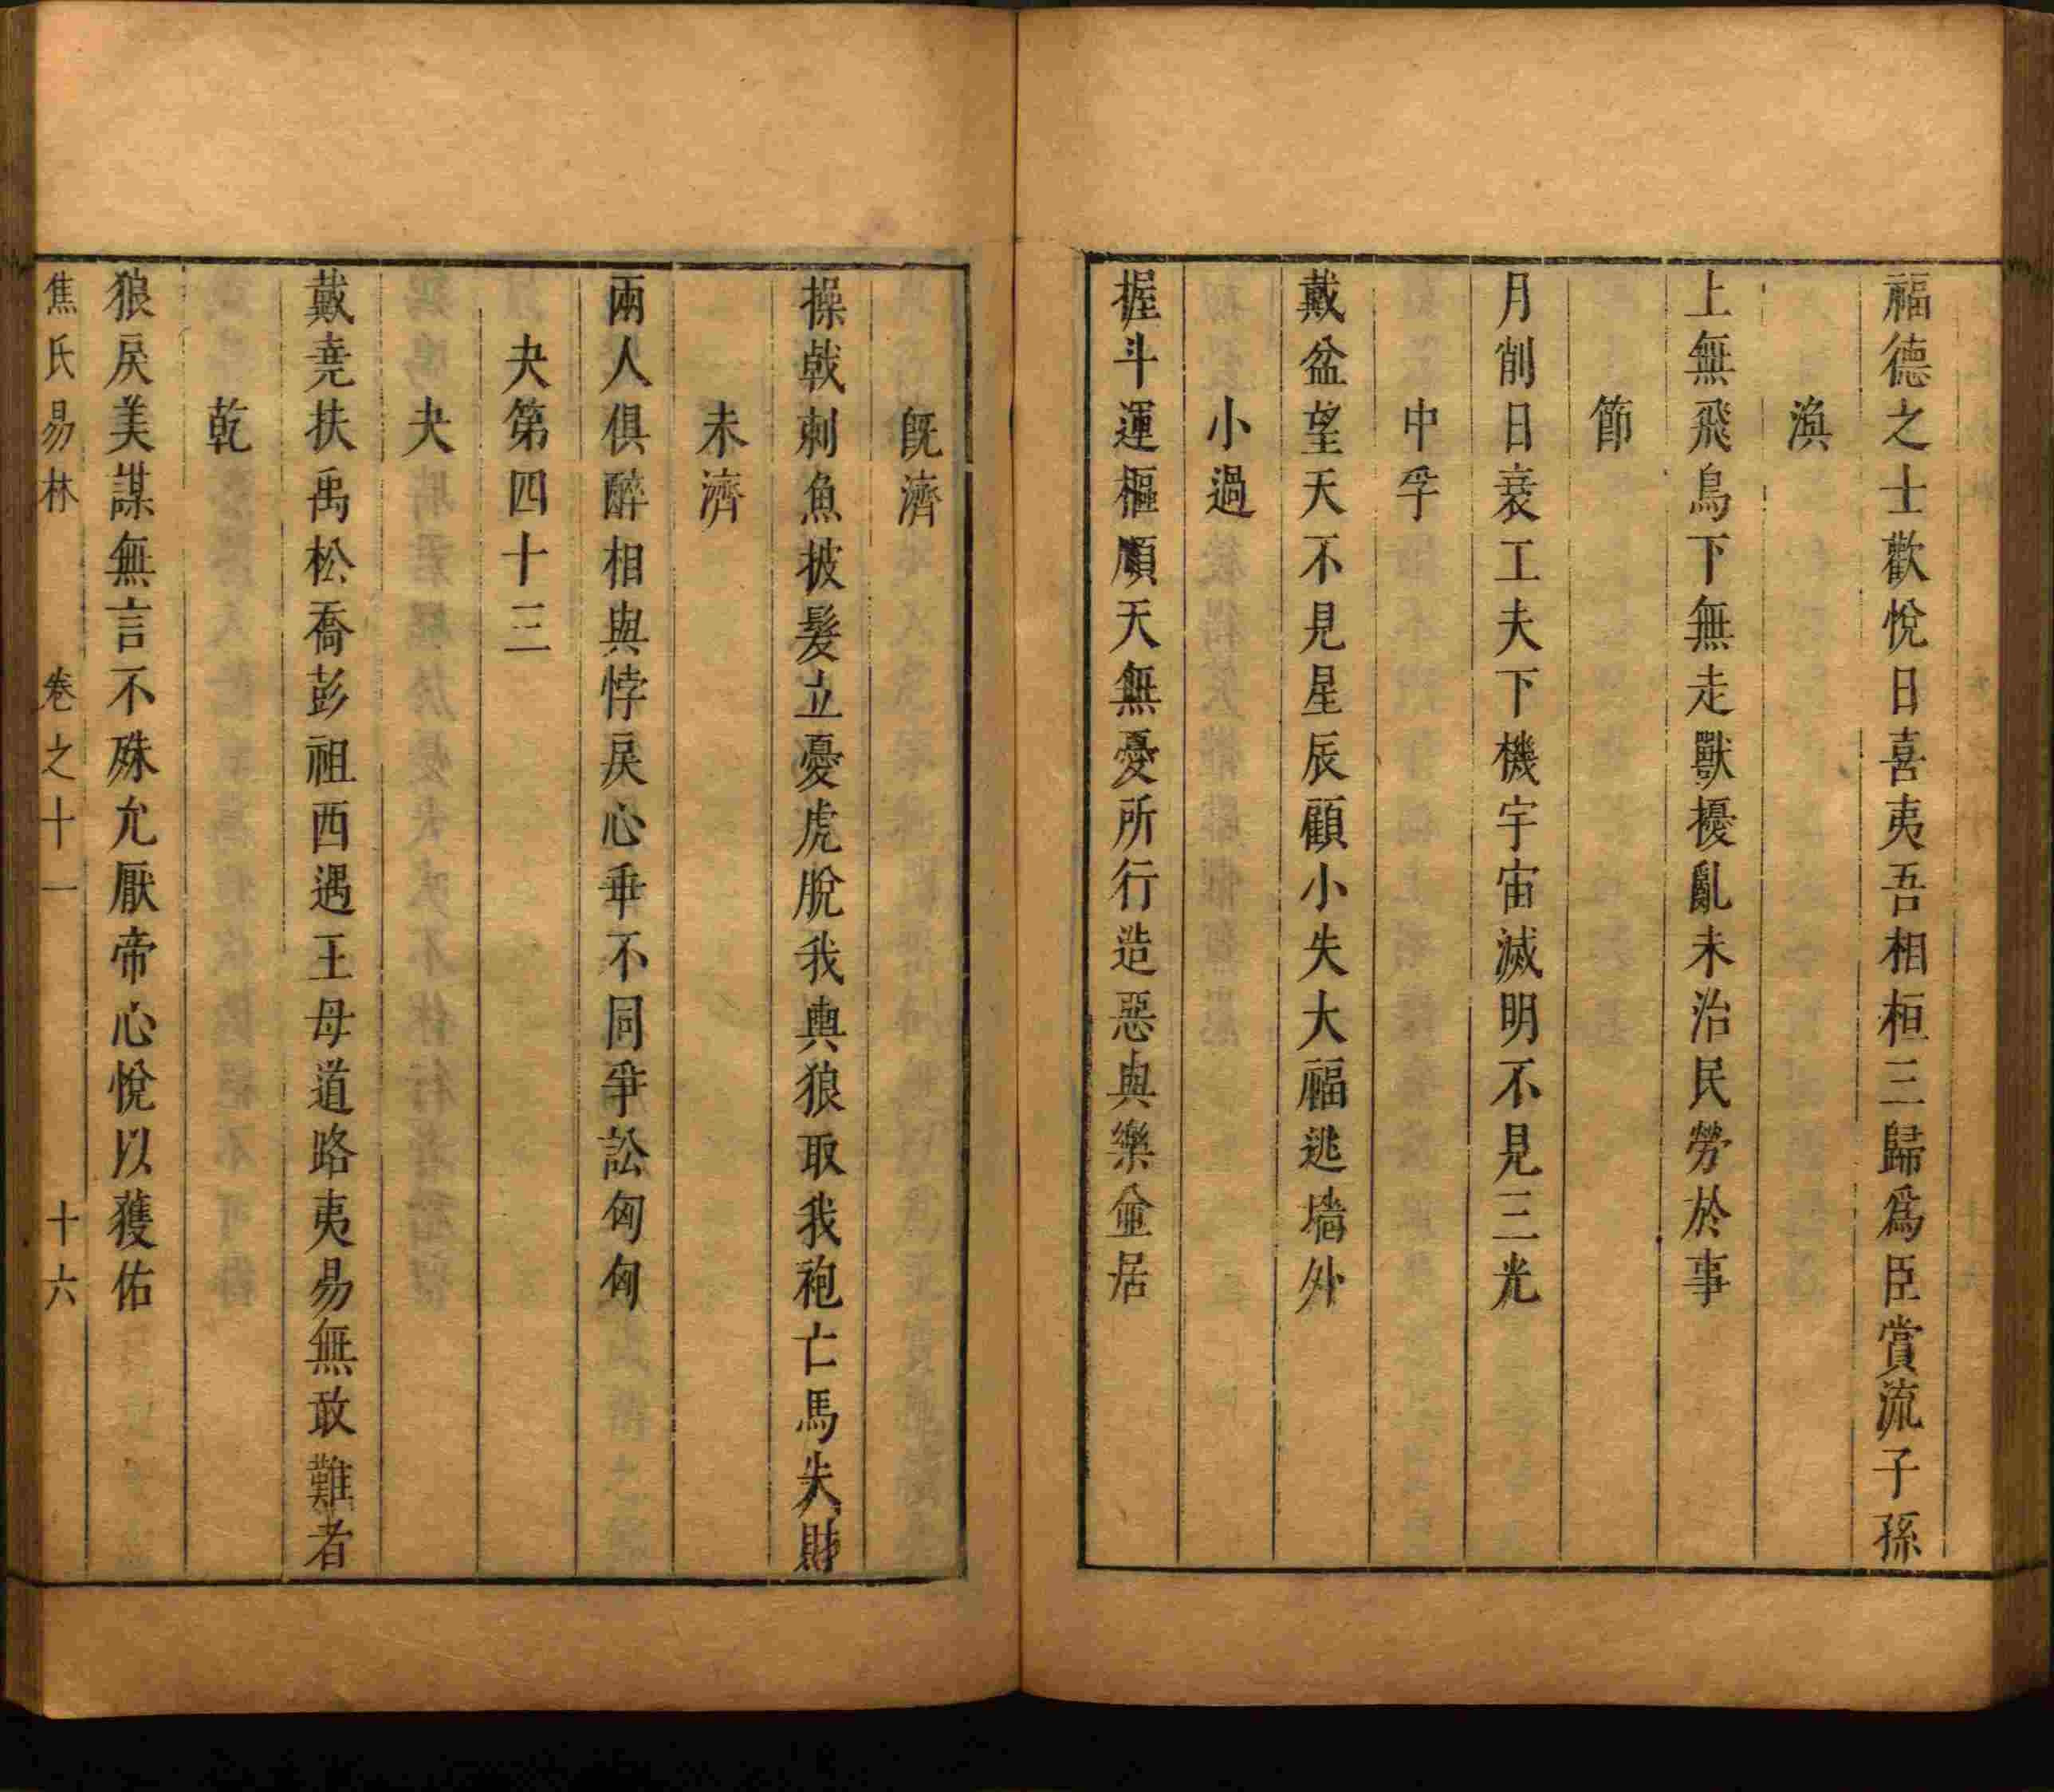 福德之士歡悅日喜夷吾相桓三歸爲臣賞流子孫
渙
上無飛鳥下無走獸擾亂未治民勞於事
節
月削日衰工夫下機宇宙滅明不見三光
中孚
戴盆望天不見星辰顧小失大福逃墻外
小過
握斗運樞順天無憂所行造惡與樂並居
旣濟
操戟刺魚披髮立憂虎脫我輿狼取我袍亡馬失財
未濟
兩人俱醉相與悖戾心乖不同爭訟匈匈
夬第四十三
夬
戴堯扶禹松喬彭祖西遇王母道路夷易無敢難者
乾
狼戾美謀無言不殊允厭帝心悅以獲佑
焦氏易林 卷之十一 十六